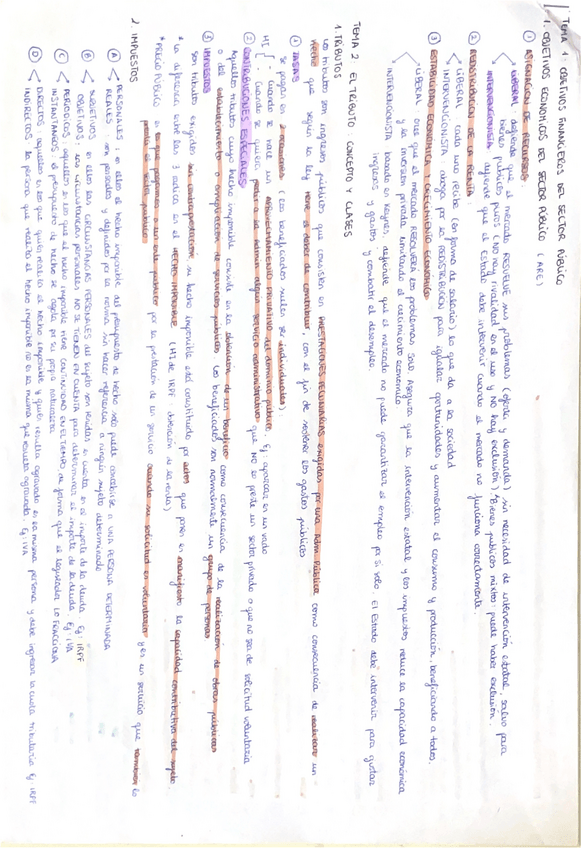 TEMA 1: OBJETIVOS FINANCIEROS DEL SECTOR PÚBLICO
1. OBJETIVOS ECONÓMICOS DEL SECTOR PÚBLICO (ARE)
① ASIGNACIÓN DE RECURSOS
LIBERAL defiende que el mercado RESUELVE sus problemas (oferta y demanda), sin necesidad de intervención estatal, salvo para
bienes públicos puros (NO hay rivalidad en el uso y no hay exclusión) *Bienes públicos mixtos: puede haber exclusión.
INTERVENCIONISTA defiende que el Estado debe intervenir cuando el mercado no funciona correctamente.
② REDISTRIBUCIÓN DE LA RENTA
LIBERAL: cada uno recibe (en forma de salario) lo que da a la sociedad
INTERVENCIONISTA aboga por la REDISTRIBUCIÓN para igualar oportunidades y aumentar el consumo y producción, beneficiando a todos.
③ ESTABILIDAD ECONÓMICA Y CRECIMIENTO ECONÓMICO
LIBERAL cree que el mercado RESOLVERÁ los problemas solo. Asegura que la intervención estatal y los impuestos reduce la capacidad económica
y la inversión privada limitando el crecimiento económico
INTERVENCIONISTA basado en Keynes, defiende que el mercado no puede garantizar el empleo por sí solo. El Estado debe intervenir para ajustar
ingresos y gastos y combatir el desempleo.
TEMA 2: EL TRIBUTO: CONCEPTO Y CLASES
1. TRIBUTOS
Los tributos son ingresos públicos que consisten en PRESTACIONES PECUNIARIAS exigidas por una Adm. Pública como consecuencia de realizar un
hecho que, según la ley, tiene el deber de contribuir, con el fin de sostener los gastos públicos
① TASAS
se pagan en 2 ocasiones (los beneficiados suelen ser individuales):
HI - cuando se hace un aprovechamiento privativo del dominio público. Ej: aparcar en un vado
- cuando se quiere pedir a la Admón algún servicio administrativo que no lo preste un sector privado o que no sea de solicitud voluntaria
② CONTRIBUCIONES ESPECIALES
Aquellos tributos cuyo hecho imponible consiste en la obtención de un beneficio como consecuencia de la realización de obras públicas
o del establecimiento o ampliación de servicios públicos. Los beneficiados son normalmente un grupo de personas
③ IMPUESTOS
son tributos exigidos sin contraprestación su hecho imponible está constituido por actos que ponen en manifiesto la capacidad contributiva del sujeto
* La diferencia entre las 3 radica en el HECHO IMPONIBLE (HI de IRPF: obtención de la renta)
* PRECIO PÚBLICO es lo que pagamos a un ente público por la prestación de un servicio cuando su solicitud es voluntaria y es un servicio que también lo
presta el sector público
2. IMPUESTOS
Ⓐ PERSONALES: en ellos el hecho imponible del presupuesto de hecho solo puede concebirse a UNA PERSONA DETERMINADA
REALES: son pensados y definidos por la norma sin hacer referencia a ningún sujeto determinado
Ⓑ SUBJETIVOS: en ellos las CIRCUNSTANCIAS PERSONALES del sujeto son tenidas en cuenta en el importe de la deuda. Ej: IRPF
OBJETIVOS: las circunstancias personales NO SE TIENEN EN CUENTA para determinar el importe de la deuda. Ej: IVA
Ⓒ PERIÓDICOS aquellos en los que el hecho imponible tiene CONTINUIDAD EN EL TIEMPO de forma que el legislador LO FRACCIONA
INSTANTÁNEOS el presupuesto de hecho se agota por su propia naturaleza
Ⓓ DIRECTOS aquellos en los que quien realiza el hecho imponible y quien resulta agravado es la misma persona y debe ingresar la cuota tributaria. Ej: IRPF
INDIRECTOS la persona que realiza el hecho imponible no es la misma que resulta agravada. Ej: IVA